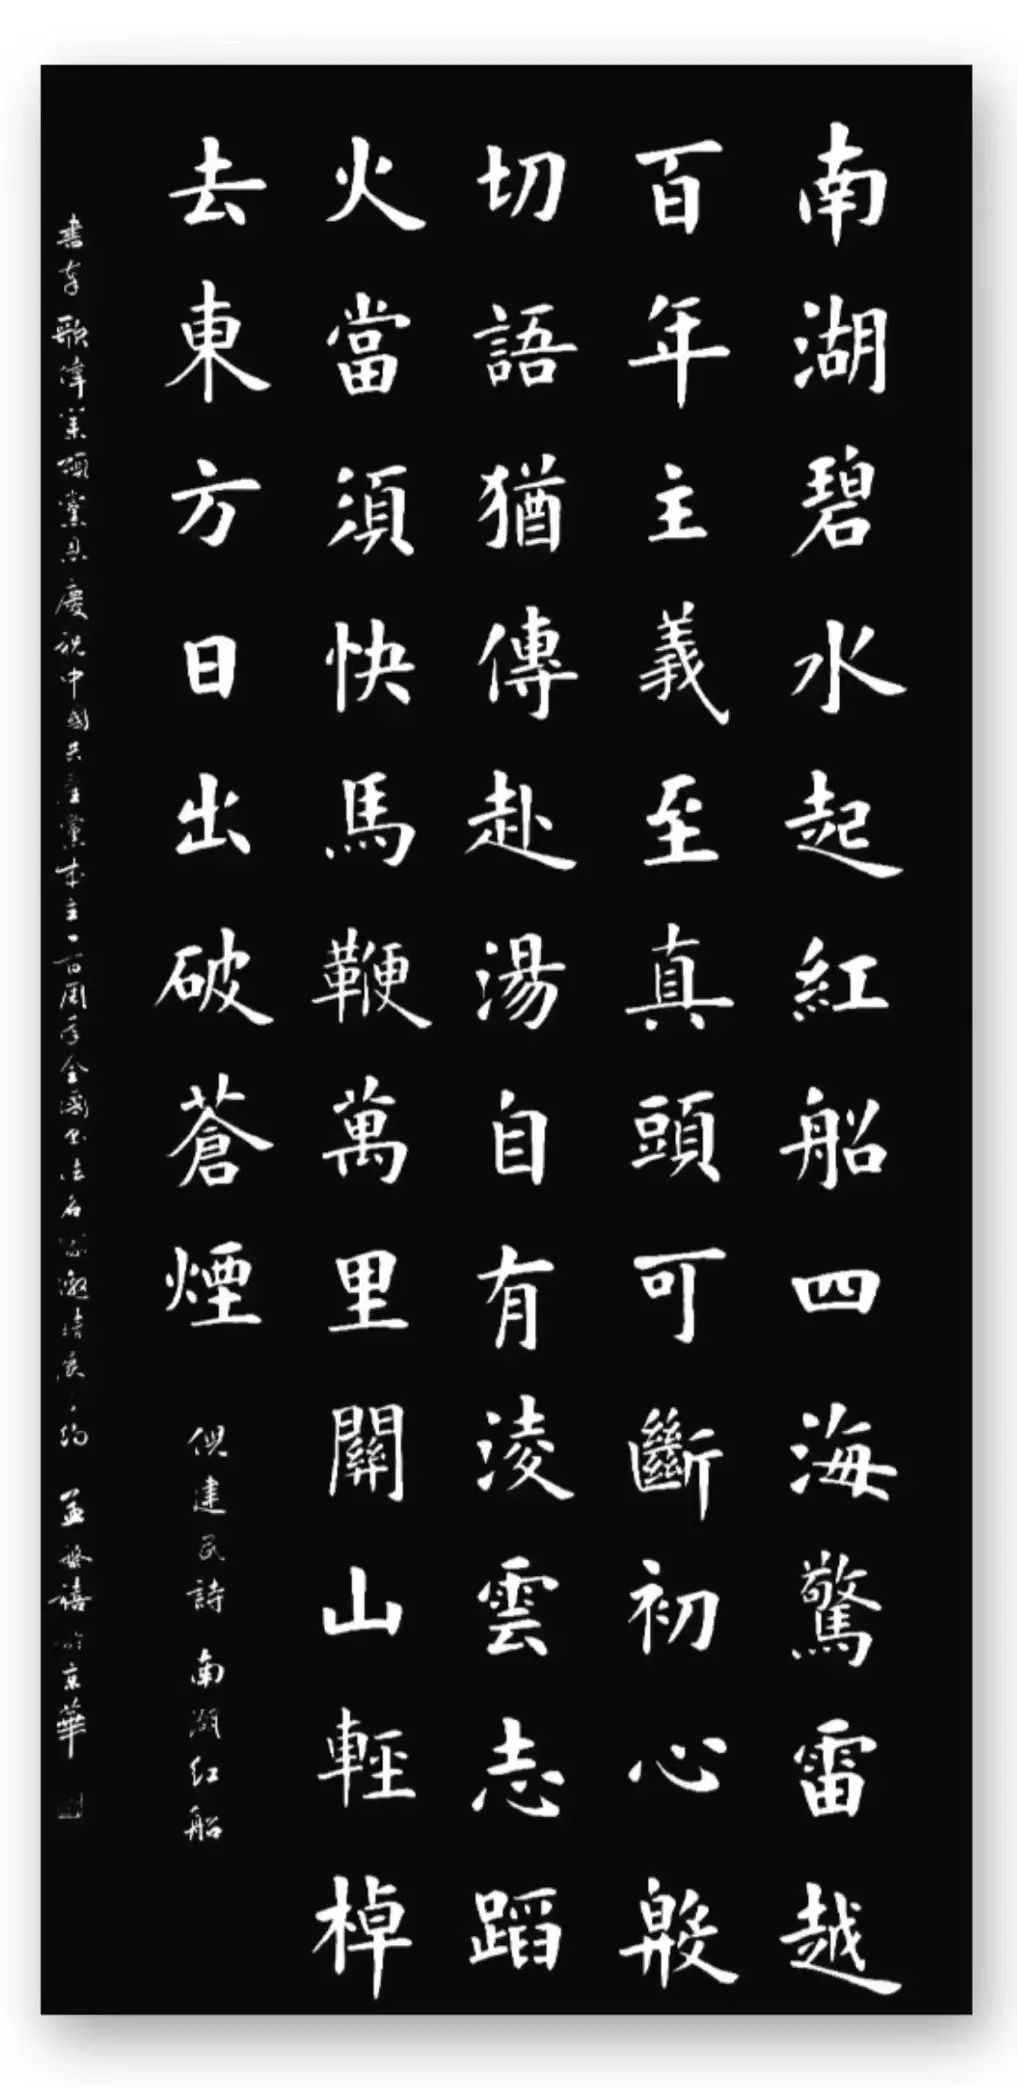 南湖碧水起紅船四海驚雷越
百年主義至真頭可斷初心殷
切語猶傳赴湯自有淩雲志蹈
火當須快馬鞭萬里關山輕棹
去東方日出破蒼煙
倶建民詩南湖紅船
書奉歌偉業頌黨恩慶祝中國共產黨成立一百周年全國書法名家邀請展之約 孟繁禧於京華